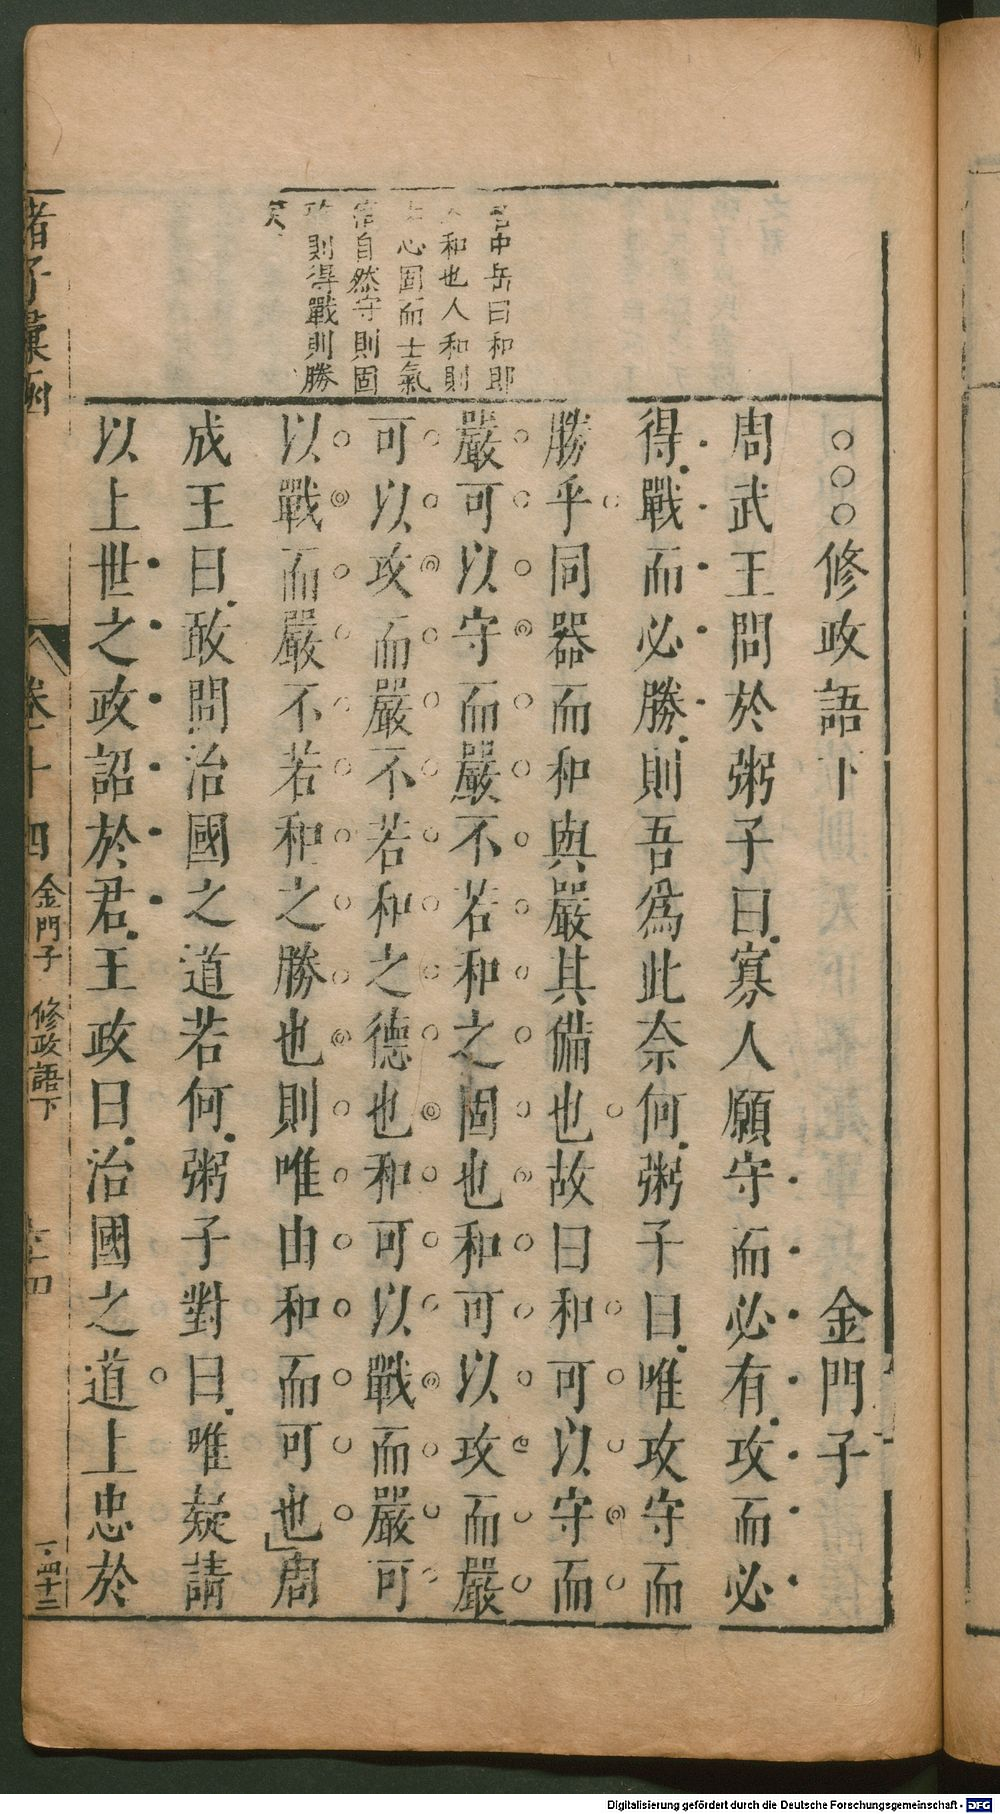 中岳曰和即
和也人和則
心固而士氣
自然守則固
則得戰則勝
矣
○○○修政語下 金門子
周武王問於粥子曰寡人願守而必有攻而必
得戰而必勝則吾爲此奈何粥子曰唯攻守而
勝乎同器而和與嚴其備也故曰和可以守而
嚴可以守而嚴不若和之固也和可以攻而嚴
可以攻而嚴不若和之德也和可以戰而嚴可
以戰而嚴不若和之勝也則唯由和而可也周
成王曰敢問治國之道若何粥子對曰唯疑請
以上世之政詔於君王政曰治國之道上忠於
諸子彙函
卷十四 金門子 修政語下
一·四十三
Digitalisierung gefördert durch die Deutsche Forschungsgemeinschaft - DFG